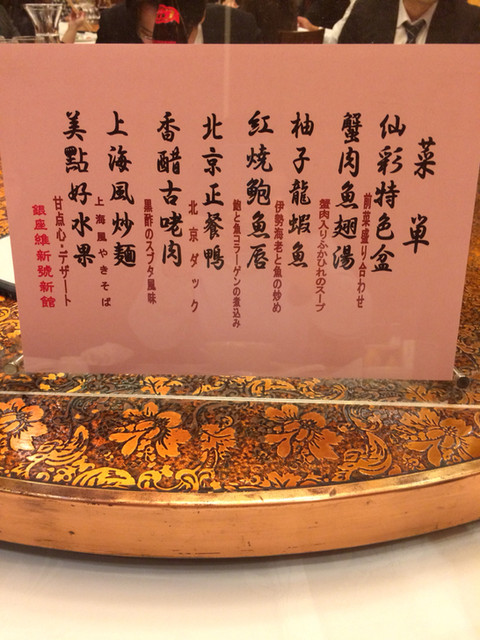 菜単
仙彩特色盆
前菜盛り合わせ
蟹肉魚翅湯
蟹肉入りふかひれのスープ
柚子龍蝦魚
伊勢海老と魚の炒め
紅焼鮑魚唇
鮑と魚コラーゲンの煮込み
北京正餐鴨
北京ダック
香醋古咾肉
黒酢のスブタ風味
上海風炒麺
上海風やきそば
美點好水果
甘点心・デザート
銀座維新號新館